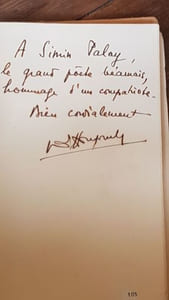 A Simin Palay,
le grand poète béarnais,
hommage d'un compatriote.
Bien cordialement
105